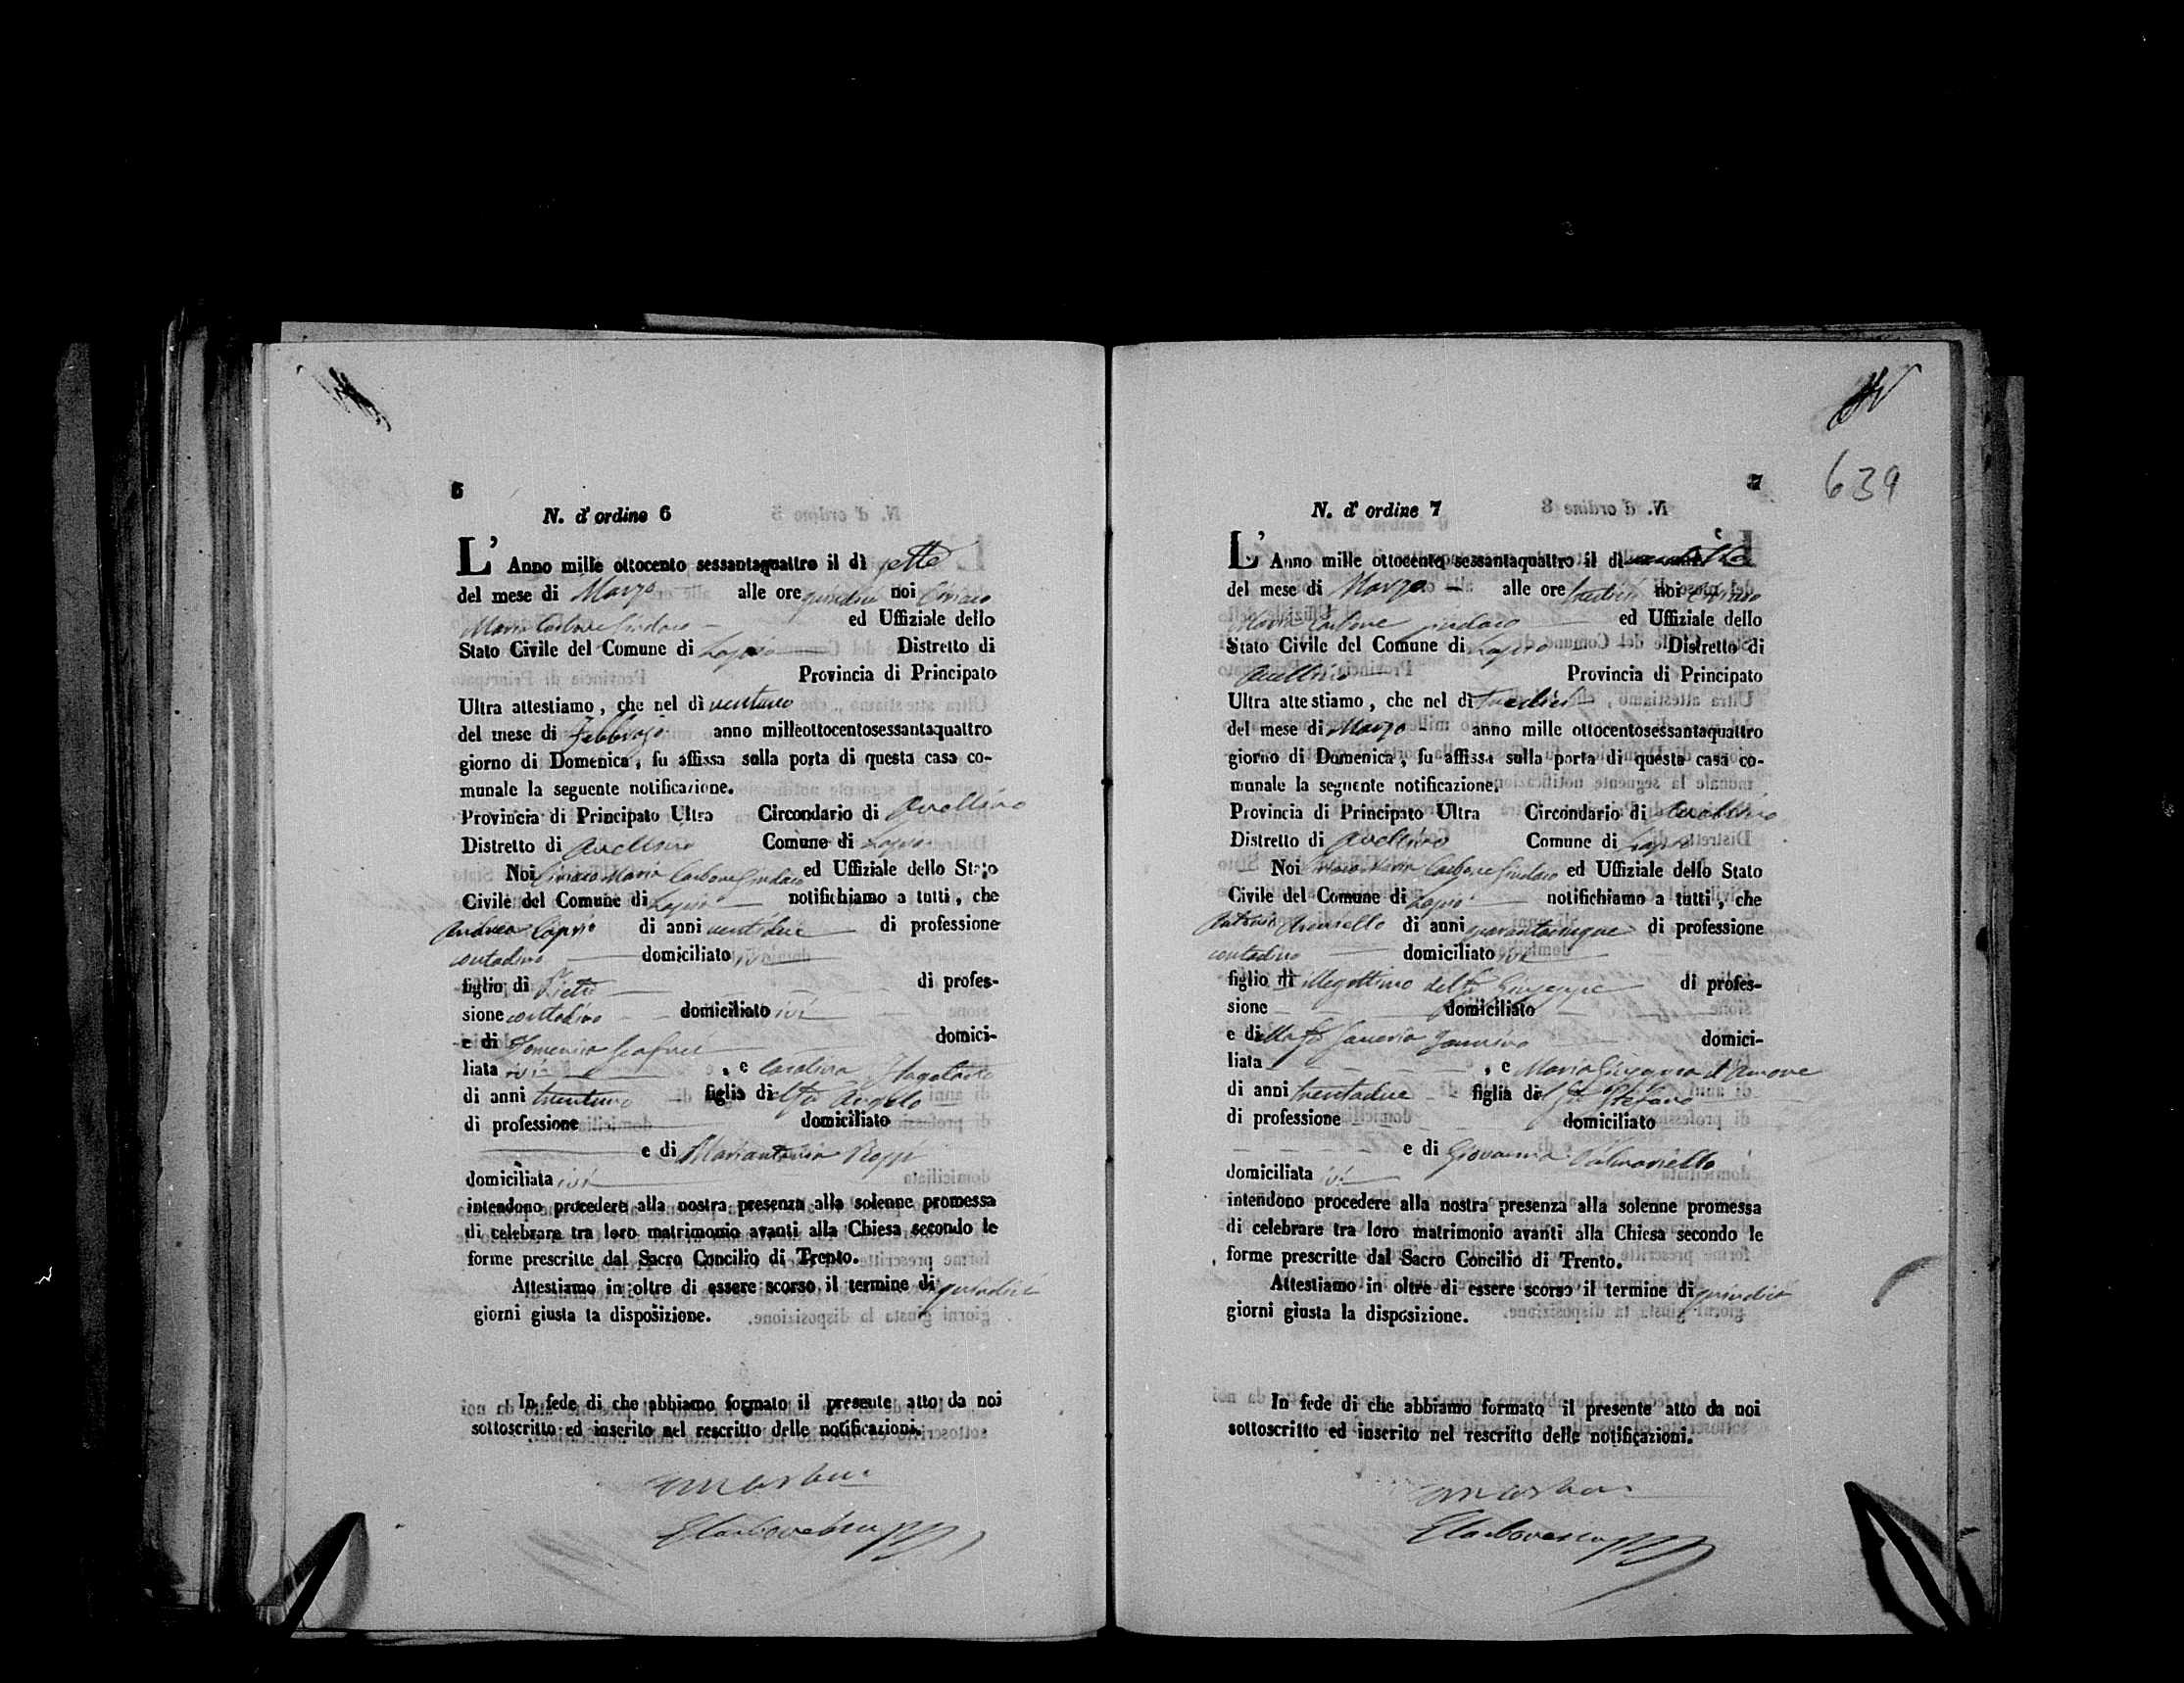 6
N. d'ordine 6
L' Anno mille ottocento sessantaquattro il dì sette
del mese di Marzo alle ore quindici noi Ciriaco
Maria Carbone Sindaco ed Uffiziale dello
Stato Civile del Comune di Lapio Distretto di
Provincia di Principato
Ultra attestiamo, che nel dì ventuno
del mese di Febbrajo anno milleottocentosessantaquattro
giorno di Domenica, fu affissa sulla porta di questa casa co-
munale la seguente notificazione.
Provincia di Principato Ultra Circondario di Avellino
Distretto di Avellino Comune di Lapio
Noi Ciriaco Maria Carbone Sindaco ed Uffiziale dello Stato
Civile del Comune di Lapio notifichiamo a tutti, che
Andrea Caprio di anni ventidue di professione
contadino domiciliato ivi
figlio di Pietro di profes-
sione contadino domiciliato ivi
e di Domenica domici-
liata ivi , e Carolina
di anni trentuno figlia del fu Angelo
di professione domiciliato
e di Mariantonia
domiciliata ivi
intendono procedere alla nostra presenza alla solenne promessa
di celebrare tra loro matrimonio avanti alla Chiesa secondo le
forme prescritte dal Sacro Concilio di Trento.
Attestiamo in oltre di essere scorso il termine di quindici
giorni giusta la disposizione.
In fede di che abbiamo formato il presente atto da noi
sottoscritto ed inscrito nel rescritto delle notificazioni.
7
639
N. d'ordine 7
L' Anno mille ottocento sessantaquattro il dì
del mese di Marzo alle ore noi Ciriaco
Maria Carbone Sindaco ed Uffiziale dello
Stato Civile del Comune di Lapio Distretto di
Avellino Provincia di Principato
Ultra attestiamo, che nel dì tredici
del mese di Marzo anno mille ottocentosessantaquattro
giorno di Domenica, fu affissa sulla porta di questa casa co-
munale la seguente notificazione.
Provincia di Principato Ultra Circondario di Avellino
Distretto di Avellino Comune di Lapio
Noi Ciriaco Maria Carbone Sindaco ed Uffiziale dello Stato
Civile del Comune di Lapio notifichiamo a tutti, che
di anni quarantacinque di professione
contadino domiciliato ivi
figlio di del fu Giuseppe di profes-
sione domiciliato
e della fu domici-
liata , e Maria Giuseppa d'Amore
di anni trentadue figlia del fu Stefano
di professione domiciliato
e di Giovanna
domiciliata ivi
intendono procedere alla nostra presenza alla solenne promessa
di celebrare tra loro matrimonio avanti alla Chiesa secondo le
forme prescritte dal Sacro Concilio di Trento.
Attestiamo in oltre di essere scorso il termine di quindici
giorni giusta la disposizione.
In fede di che abbiamo formato il presente atto da noi
sottoscritto ed inscrito nel rescritto delle notificazioni.